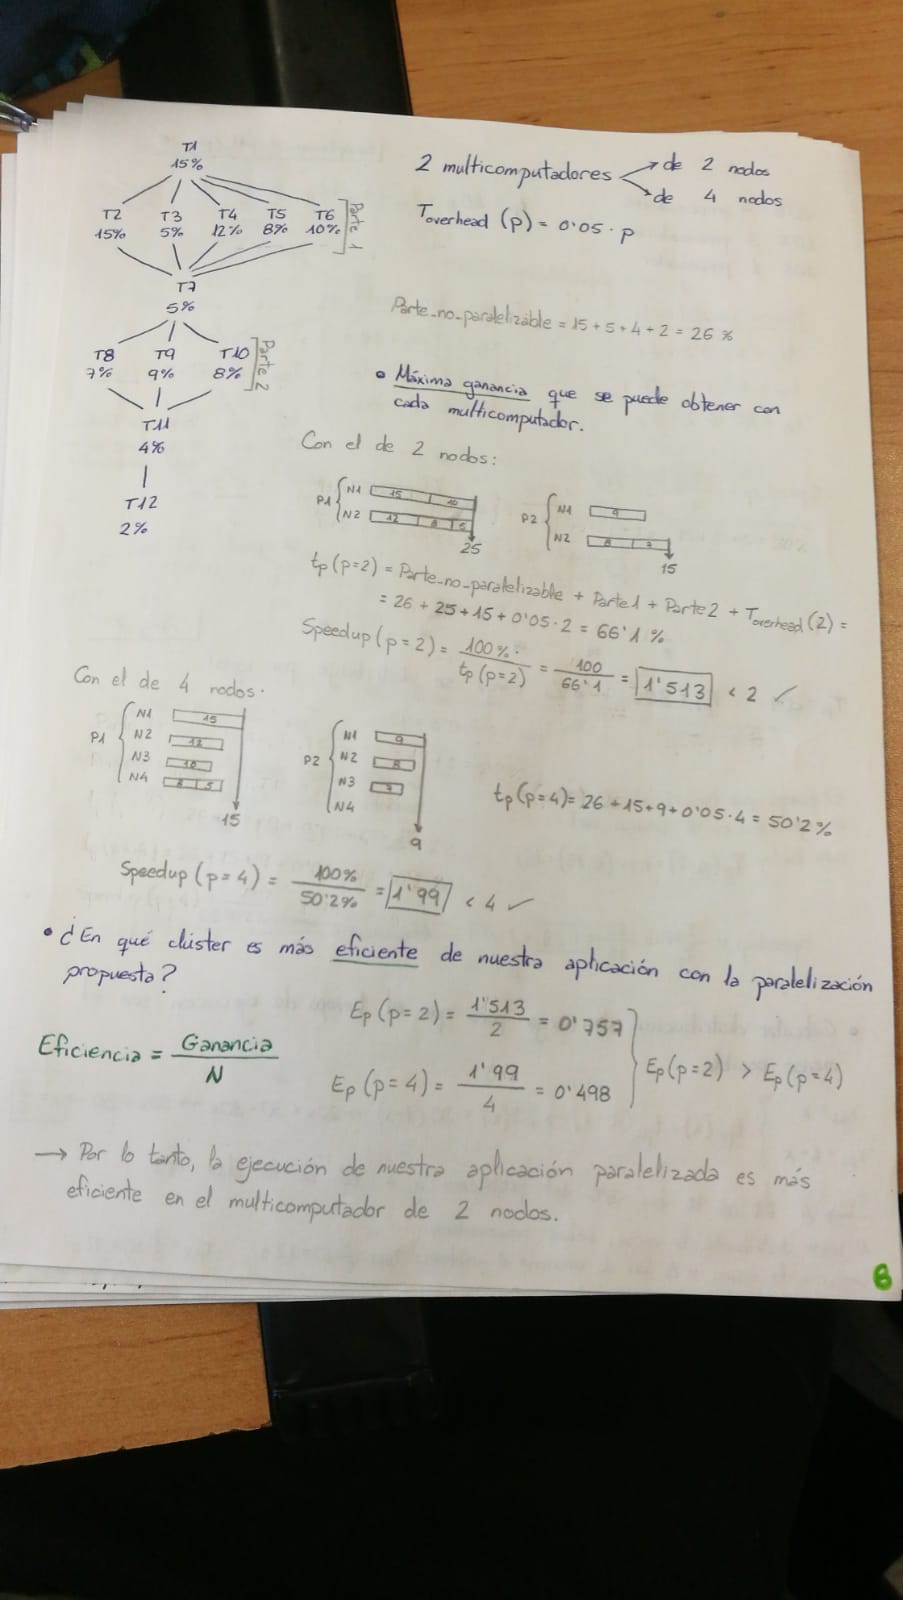 T1
15%
T2 T3 T4 T5 T6
15% 5% 12% 8% 10%
Parte 1
T7
5%
T8 T9 T10
7% 9% 8%
Parte 2
T11
4%
T12
2%
2 multicomputadores de 2 nodos
de 4 nodos
Toverhead (p) = 0'05 · p
Parte_no_paralelizable = 15 + 5 + 4 + 2 = 26 %
• Máxima ganancia que se puede obtener con
cada multicomputador.
Con el de 2 nodos:
P1 N1 15 10
N2 12 8 5
25
P2 N1 9
N2 8 7
15
tp (p=2) = Parte_no_paralelizable + Parte1 + Parte2 + Toverhead (2) =
= 26 + 25 + 15 + 0'05 · 2 = 66'1 %
Speedup (p=2) = 100% / tp (p=2) = 100 / 66'1 = 1'513 < 2 ✓
Con el de 4 nodos.
P1 N1 15
N2 12
N3 10
N4 8 5
15
P2 N1 9
N2 8
N3 7
N4
9
tp (p=4) = 26 + 15 + 9 + 0'05 · 4 = 50'2 %
Speedup (p=4) = 100% / 50'2% = 1'99 < 4 ✓
• ¿En qué clúster es más eficiente de nuestra aplicación con la paralelización
propuesta?
Eficiencia = Ganancia / N
Ep (p=2) = 1'513 / 2 = 0'757
Ep (p=4) = 1'99 / 4 = 0'498
Ep (p=2) > Ep (p=4)
→ Por lo tanto, la ejecución de nuestra aplicación paralelizada es más
eficiente en el multicomputador de 2 nodos.
6